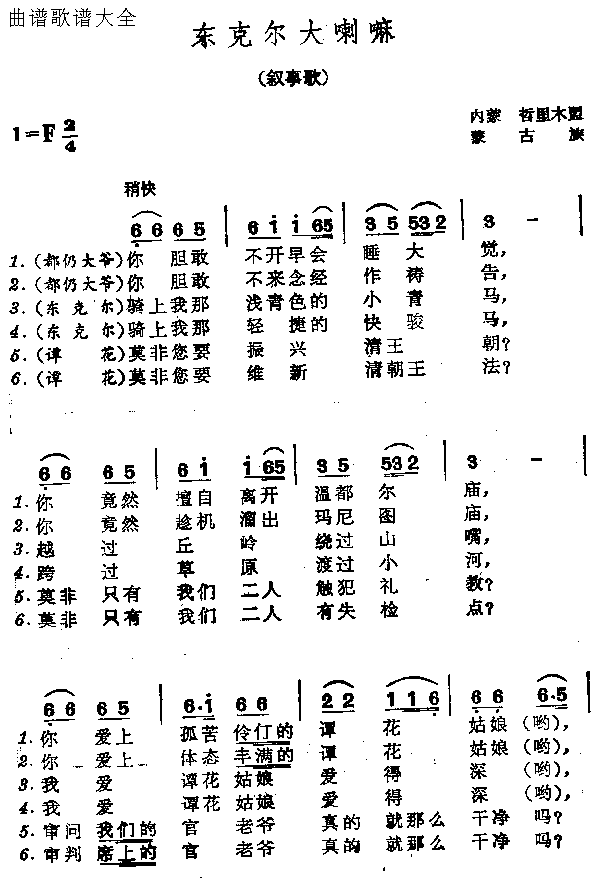 曲谱歌谱大全
东克尔大喇嘛
(叙事歌)
内蒙 哲里木盟
蒙古族
1=F 2/4
稍快
6 6 6 5 | 6 i i 65 | 3 5 532 | 3 - |
1.(都仍大爷)你 胆敢 不开早会 睡大觉,
2.(都仍大爷)你 胆敢 不来念经 作祷告,
3.(东克尔)骑上我那 浅青色的 小青马,
4.(东克尔)骑上我那 轻捷的 快骏马,
5.(谭花)莫非您要 振兴 清王朝?
6.(谭花)莫非您要 维新 清朝王法?
6 6 6 5 | 6 i i 65 | 3 5 532 | 3 - |
1.你 竟然 擅自离开 温都尔庙,
2.你 竟然 趁机溜出 玛尼图庙,
3.越过 丘岭 绕过山嘴,
4.跨过 草原 渡过小河,
5.莫非只有 我们二人 触犯礼教?
6.莫非只有 我们二人 有失检点?
6 6 6 5 | 6·i 6 6 | 2 2 1 1 6 | 6 6 6·5 |
1.你 爱上 孤苦伶仃的 谭花 姑娘(哟),
2.你 爱上 体态丰满的 谭花 姑娘(哟),
3.我 爱 谭花姑娘 爱得 深(哟),
4.我 爱 谭花姑娘 爱得 深(哟),
5.审问我们的 官老爷 真的就那么 干净吗?
6.审判席上的 官老爷 真的就那么 干净吗?